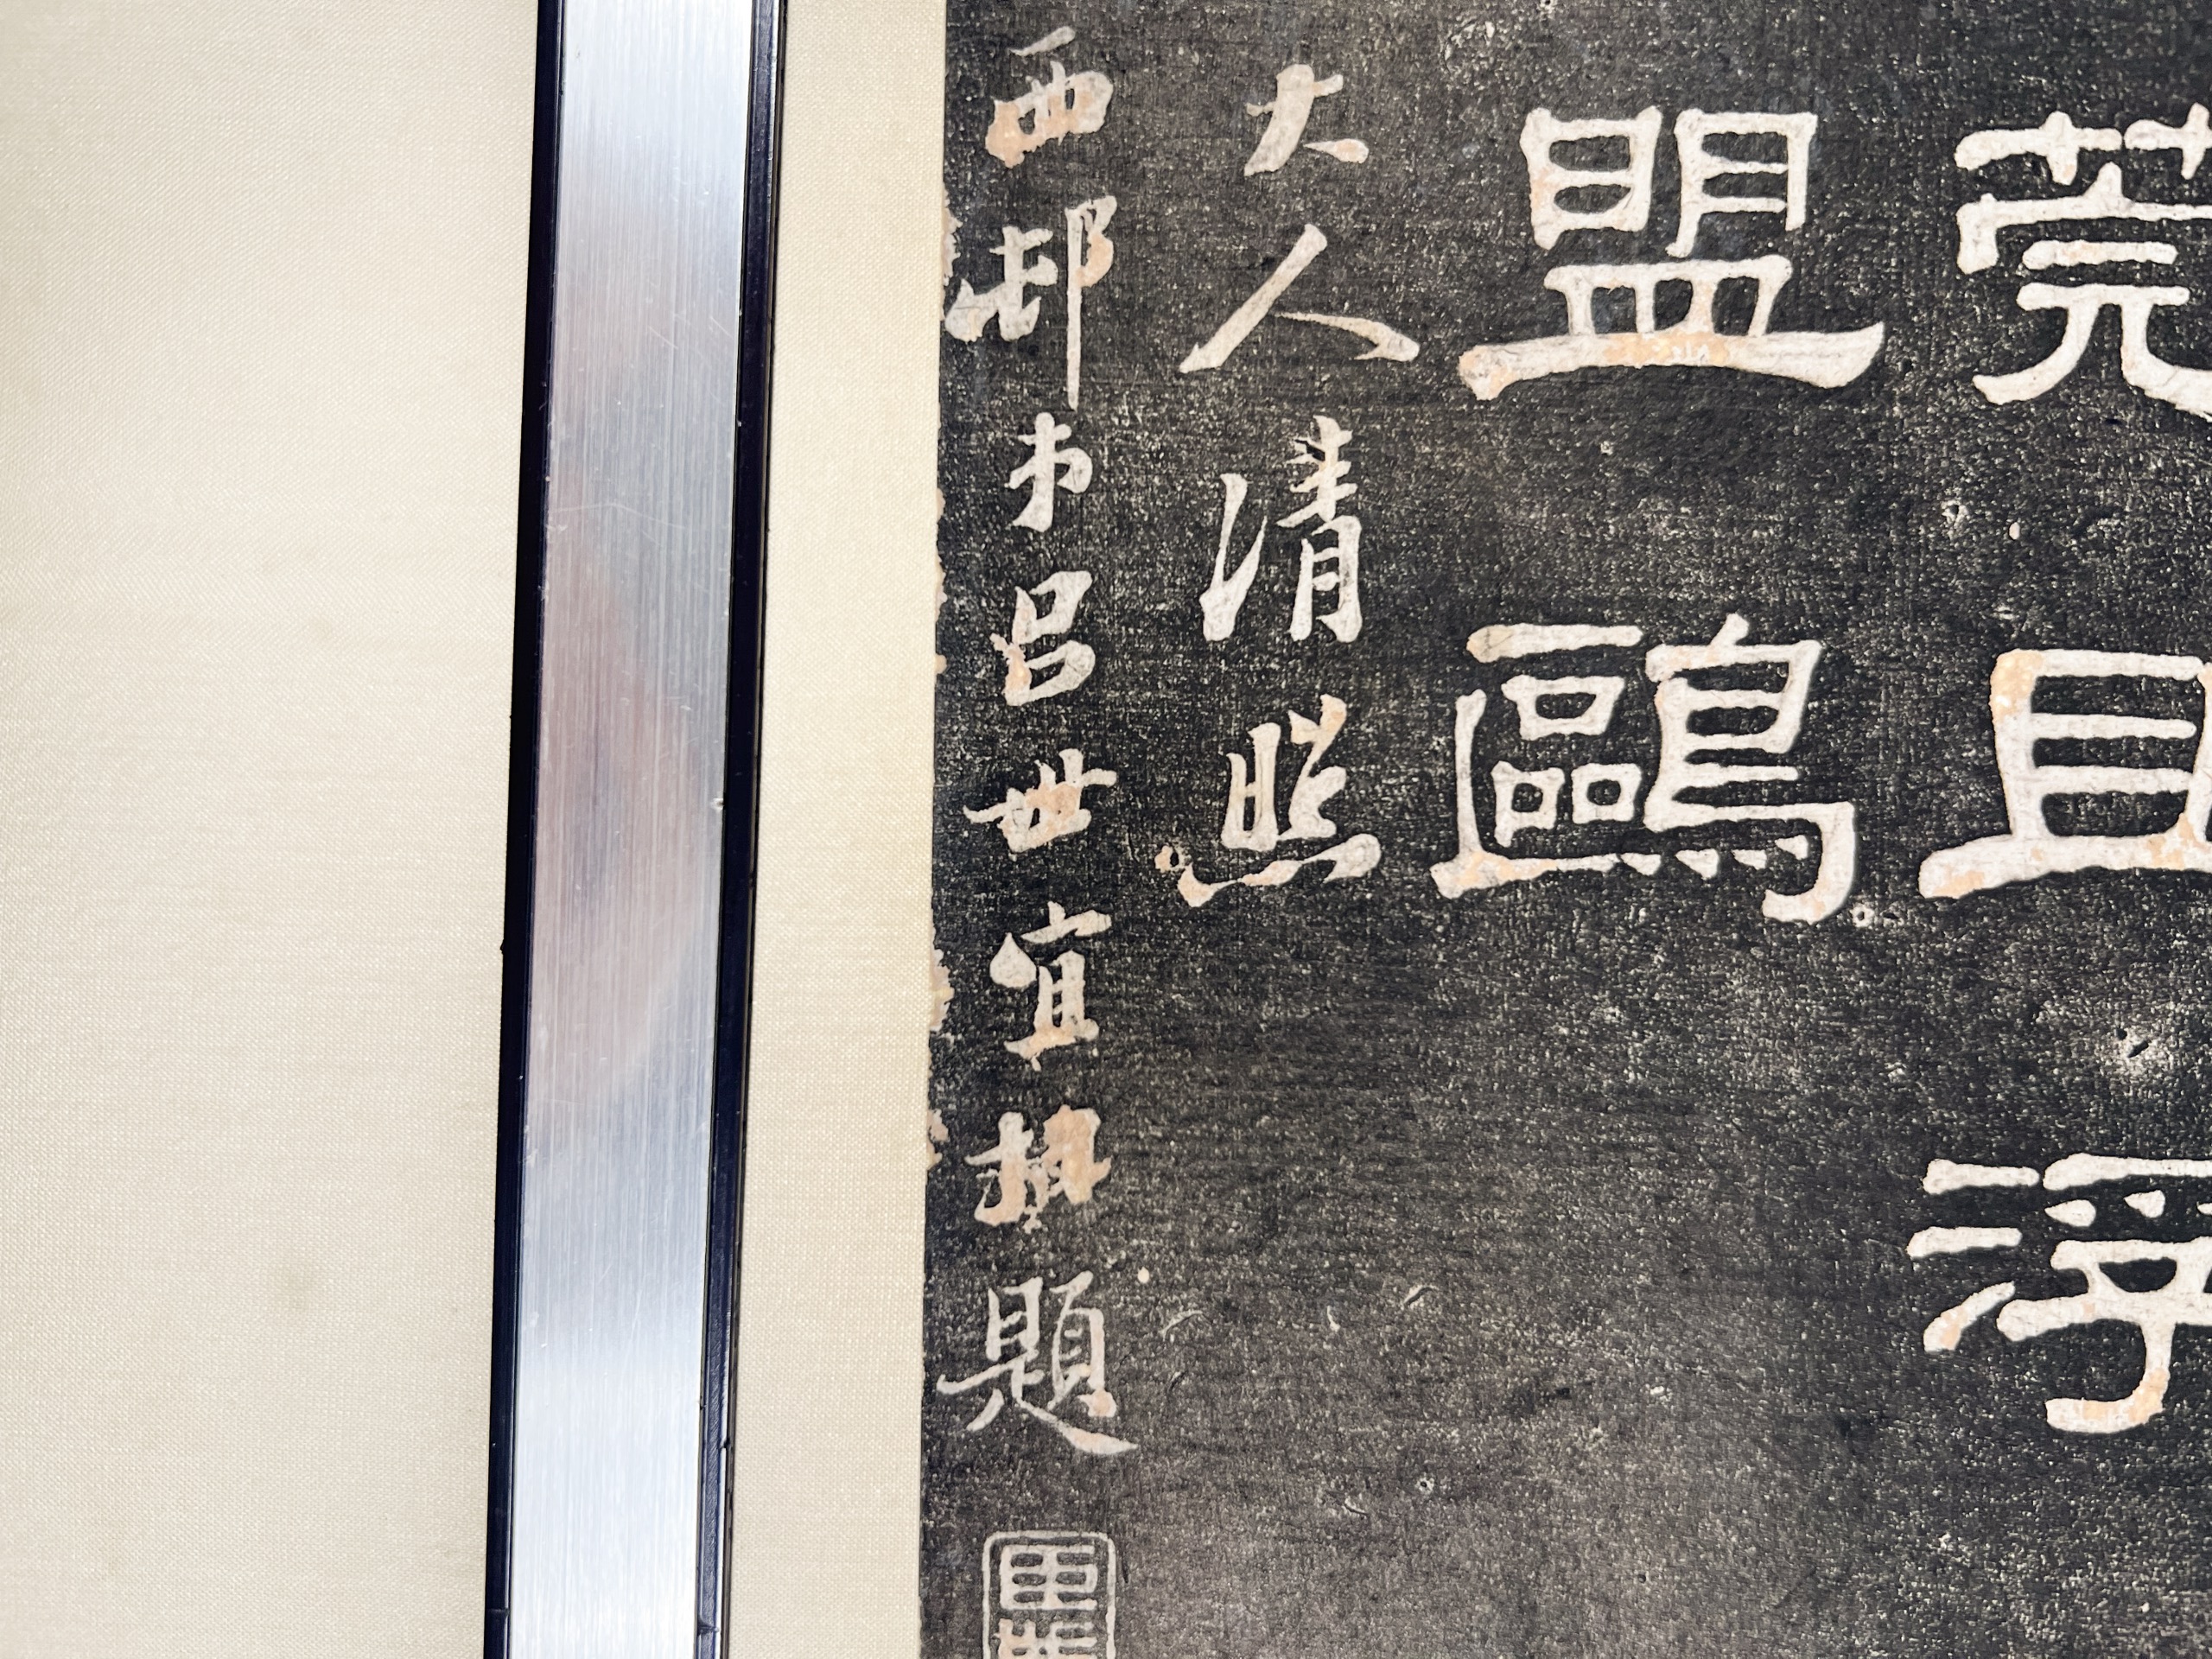 莞且浮
盟鷗
大人清照
西邨弟呂世宜題